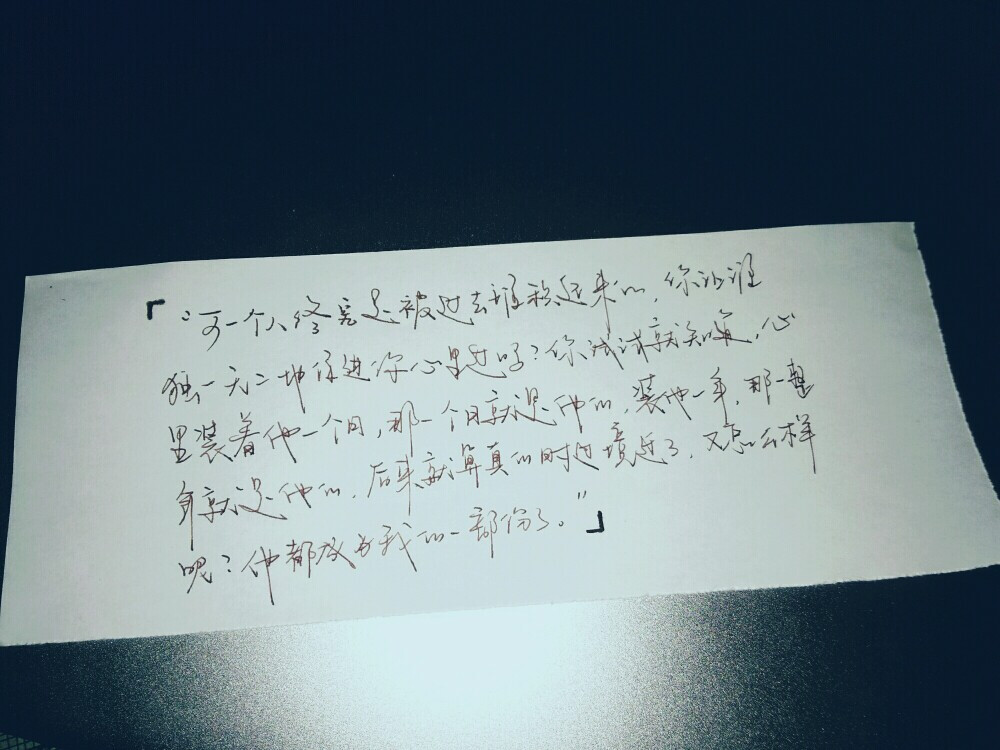 「“可一个人终究是被过去堆积起来的,你让谁
独一无二地住进你心里过吗?你试试就知道,心
里装着他一个月,那一个月就是他的,装他一年,那一整
年就是他的,后来就算真的时过境迁了,又怎么样
呢?他都成为我的一部份了。”」